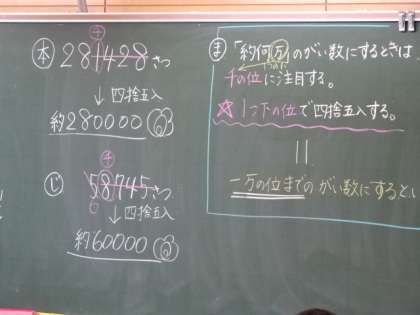 千
本 281428さつ
↓四捨五入
約280000
千
じ 58745さつ
6
↓四捨五入
約60000
ま 「約何万」のがい数にするときは
千の位に注目する。
☆1つ下の位で四捨五入する。
||
一万の位までのがい数にするとい